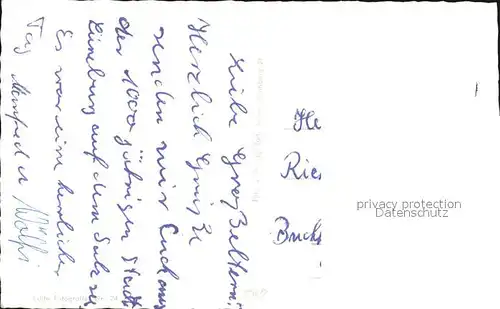 Liebe Großeltern,
Herzlich Grüße
senden wir Euch aus
der 1000 jährigen Stadt
Lüneburg auf dem Salz
Es war ein herrlicher
Tag Manfred u Wölfi
He
Ries
Buch
privacy protection
Datenschutz